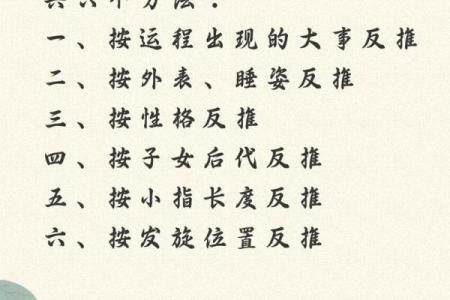 共六个方法：
一、按运程出现的大事反推
二、按外表、睡姿反推
三、按性格反推
四、按子女后代反推
五、按小指长度反推
六、按发旋位置反推